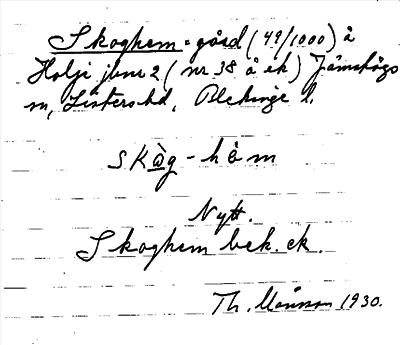 Skoghem = gård (49/1000) å
Holje jbnr 2 (nr 38 å ek) Jämshögs
sn, Listers hd, Blekinge l.
skòg-hèm
Nytt.
Skoghem bek. ek.
Th. Månsson 1930.